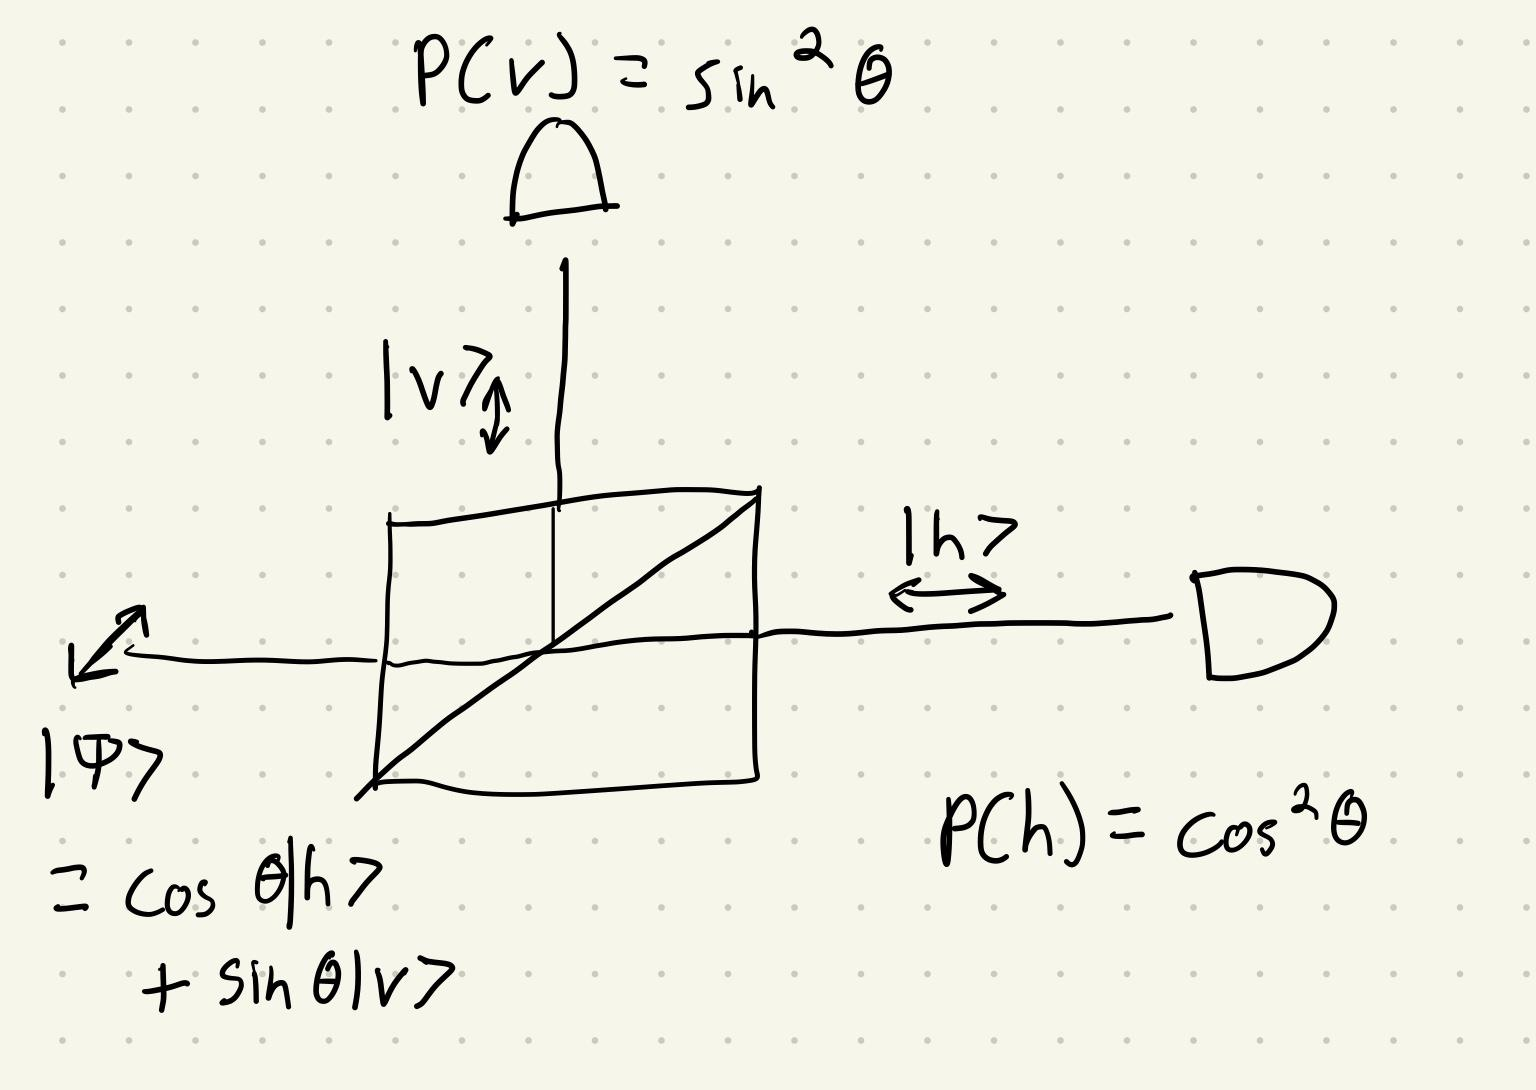 P(v) = sin² θ
|v>
|h>
|Ψ>
= cos θ|h>
+ sin θ|v>
P(h) = cos² θ